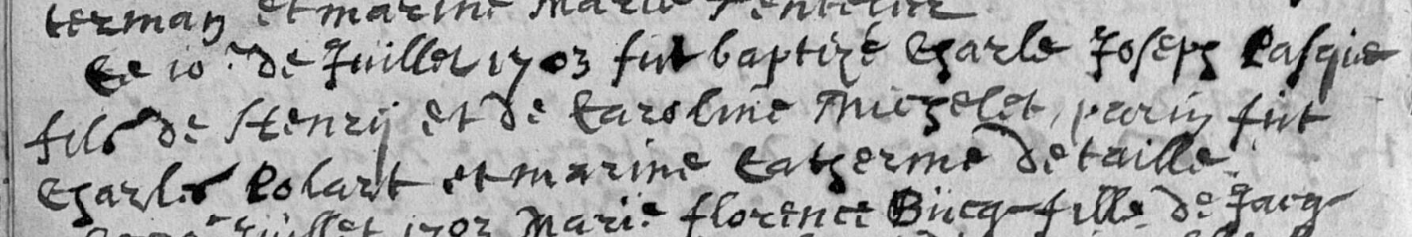 terman et marine Marie
Le 10 de Juillet 1703 fut baptizé Charle Joseph Pasque
fils de Henry et de Caroline Michelet, parin fut
Charles Colart et marine Catherine Detaille
Juillet 1703 Marie florence Bucq fille de Jacq